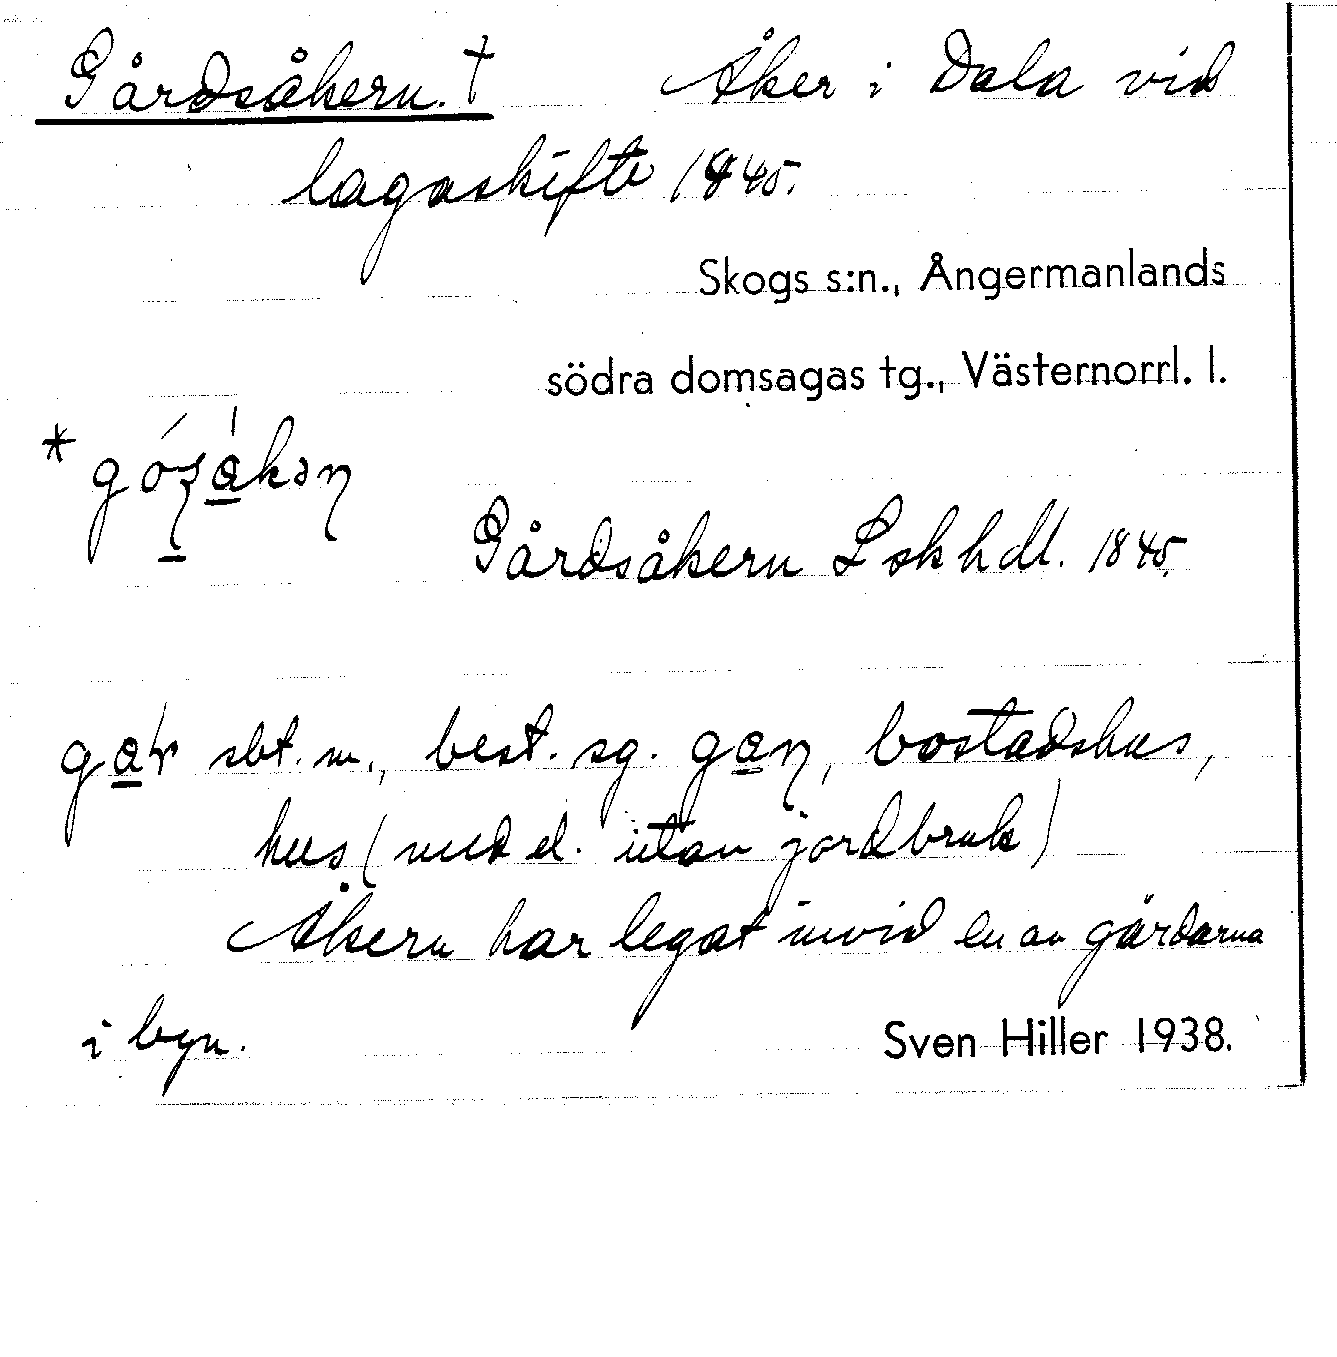 Gårdsåkern. † Åker i Dala vid
lagaskifte 1845.
Skogs s:n., Ångermanlands
södra domsagas tg., Västernorrl. l.
Gårdsåkern Lskhdl. 1845.
sbt. m., best. sg. bostadshus,
hus (med el. utan jordbruk)
Åkern har legat invid en av gårdarna
i byn. Sven Hiller 1938.